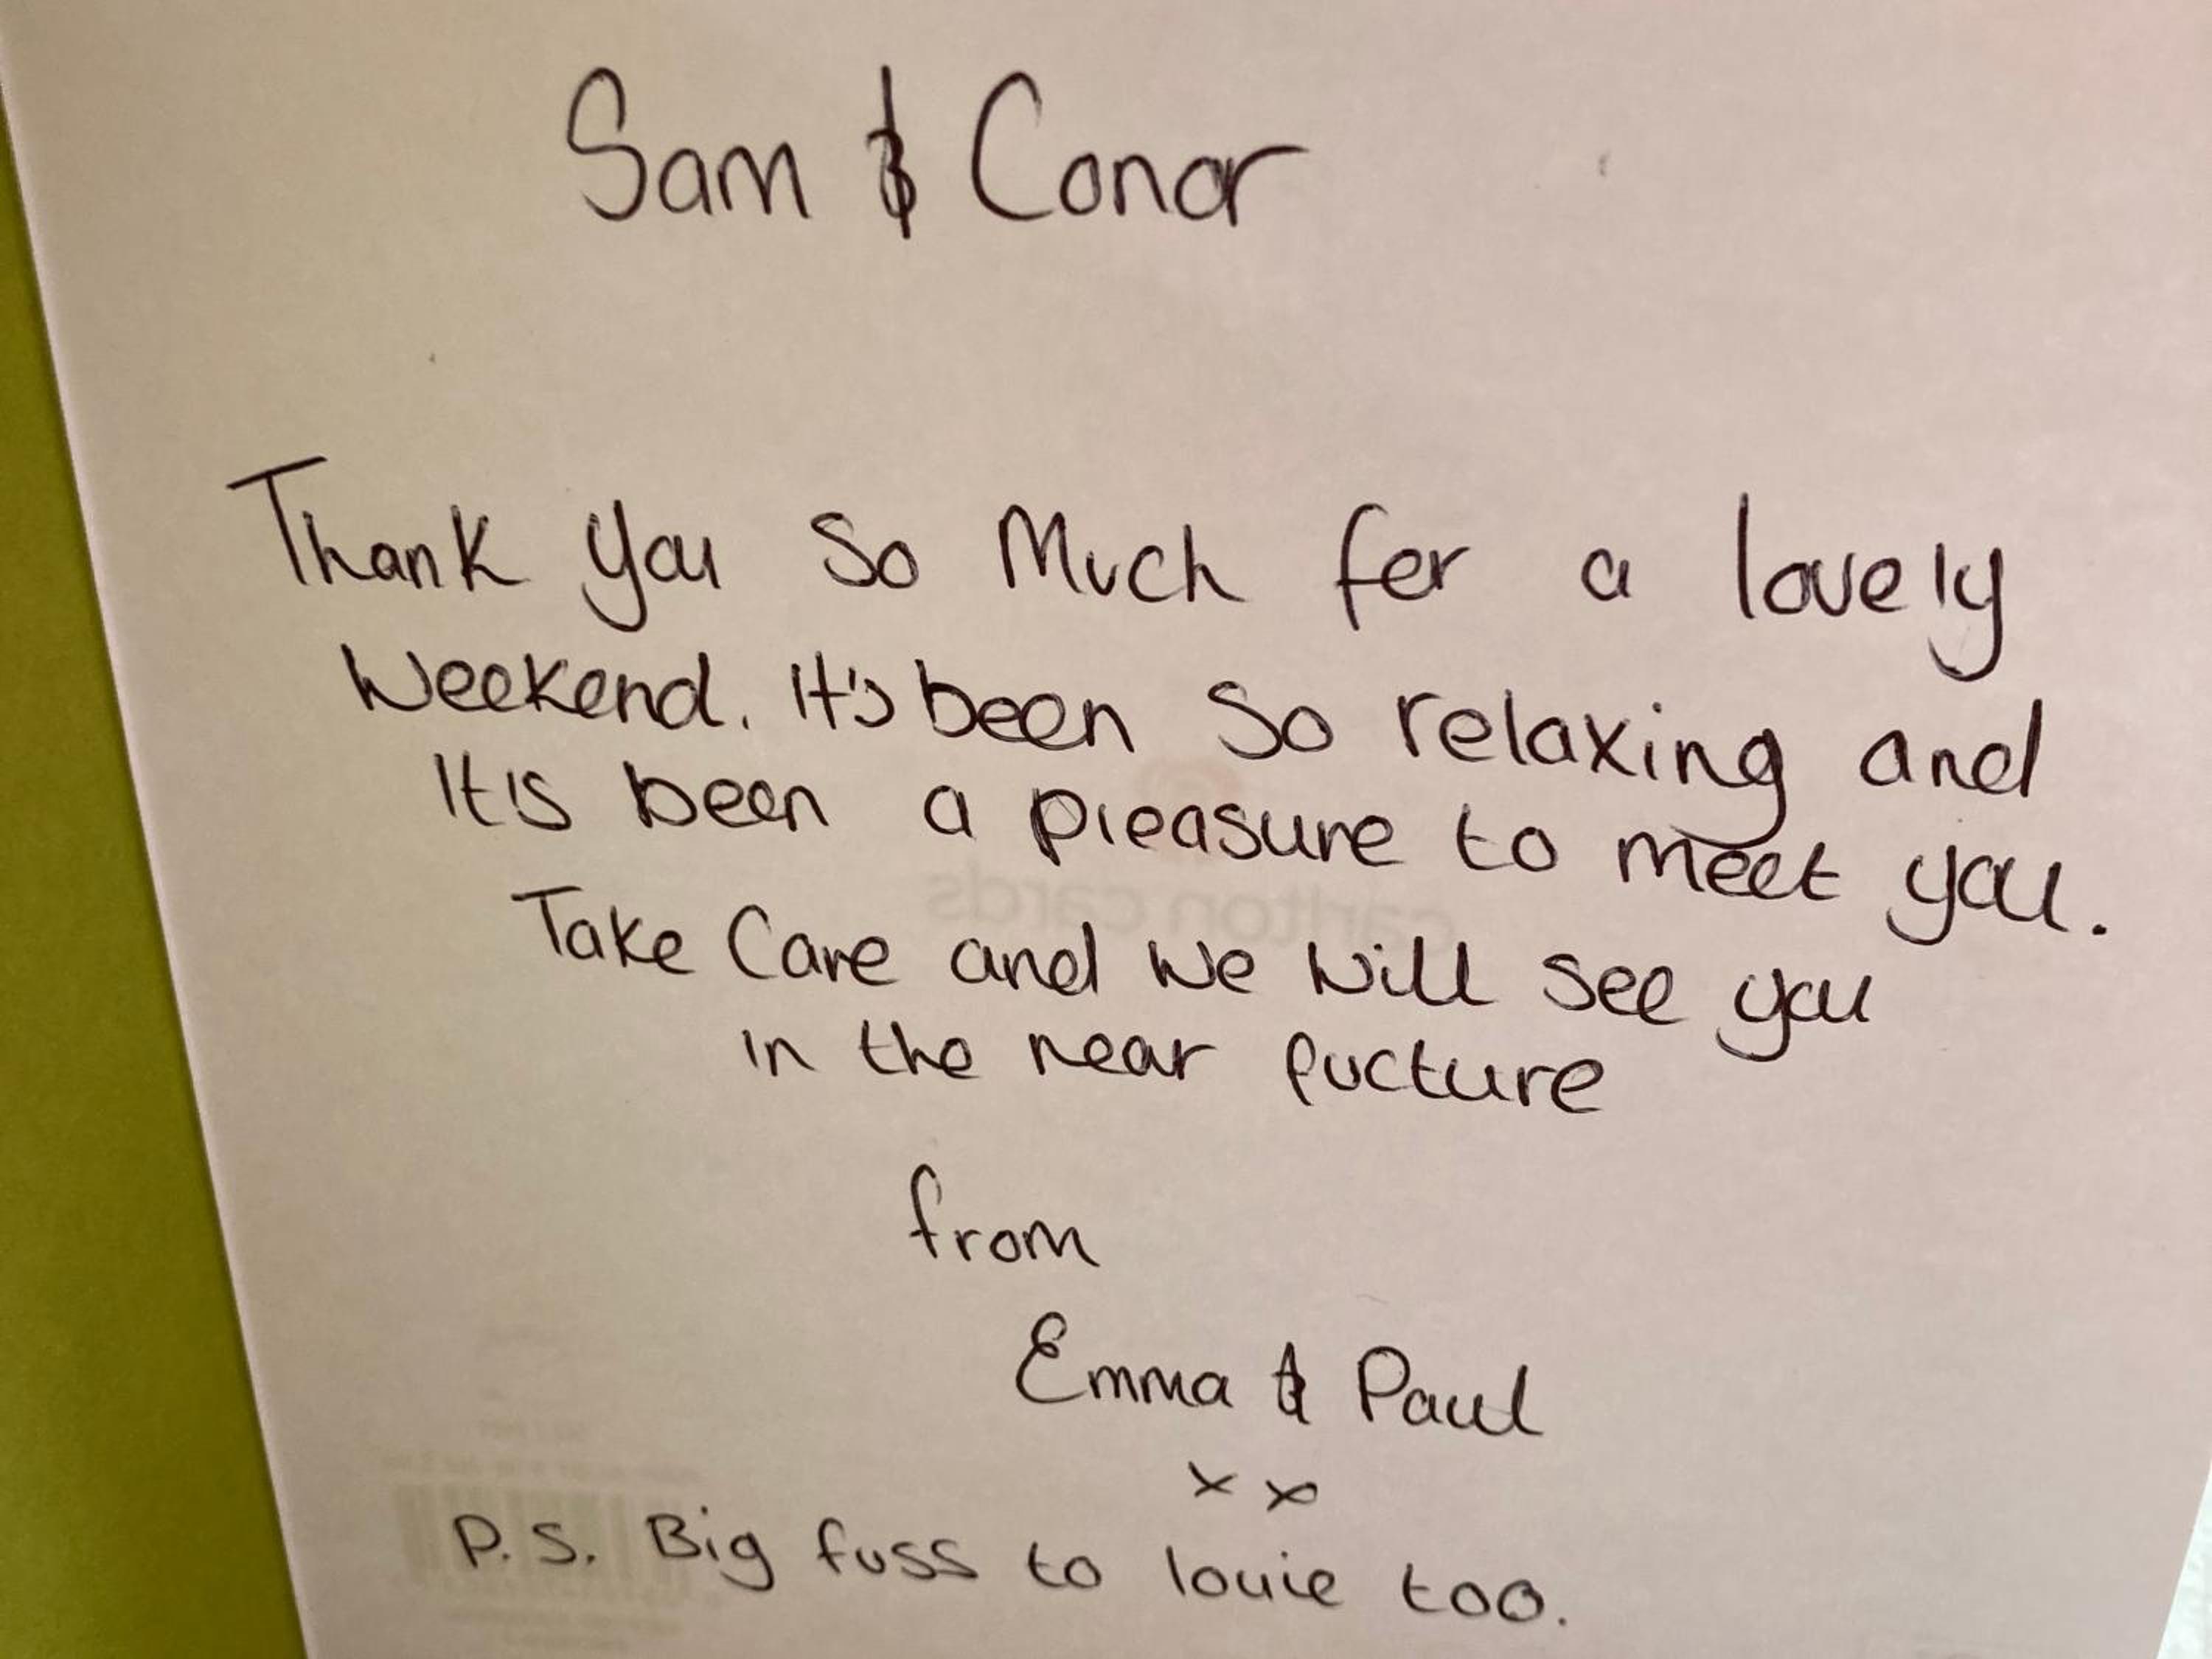 Sam & Conor
Thank you so Much for a lovely
Weekend. It's been so relaxing and
It is been a pleasure to meet you.
Take Care and we will see you
in the near fucture
from
Emma & Paul
x x
P.S. Big fuss to louie too.
carlton cards